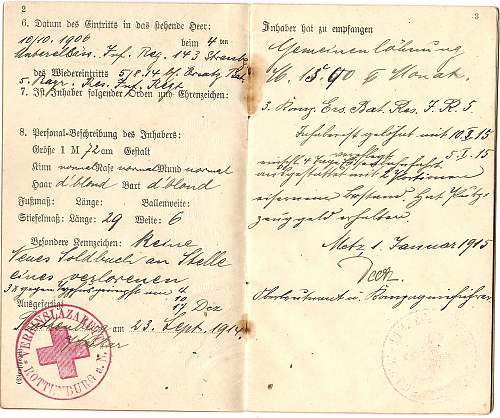 2
6. Datum des Eintritts in das stehende Heer:
10/10. 1906 beim 4 ten
Unterelsäss. Inf. Reg. 143 Strassb.
des Wiedereintritts 5/8.14
5. Res. Inf. Regt
7. Ist Inhaber folgender Orden und Ehrenzeichen:
8. Personal-Beschreibung des Inhabers:
Größe 1 M 72 cm Gestalt
Kinn normal Nase normal Mund normal
Haar d'blond Bart d'blond
Fußmaß: Länge: Ballenweite:
Stiefelmaß: Länge: 29 Weite: 6
Besondere Kennzeichen: Keine
Neues Soldbuch an Stelle
eines verlorenen
3 x gegen Typhus geimpft am 4
10
17 Dez
Ausgefertigt
Rottenburg am 23. Sept. 1914
VEREINSLAZARETT ROTTENBURG a. N.
3
Inhaber hat zu empfangen
Gemeinenlöhnung
M. 15.90 p Monat.
3. Komp. Ers. Bat. Res. J. R. 5.
Inhaber ist gelöhnt mit 10.I.15
5.I.15
ausgestattet mit 2 Portionen
eisernem Bestand. Hat Putz-
zeuggeld erhalten.
Metz 1. Januar 1915
Oberleutnant u. Kompagnieführer